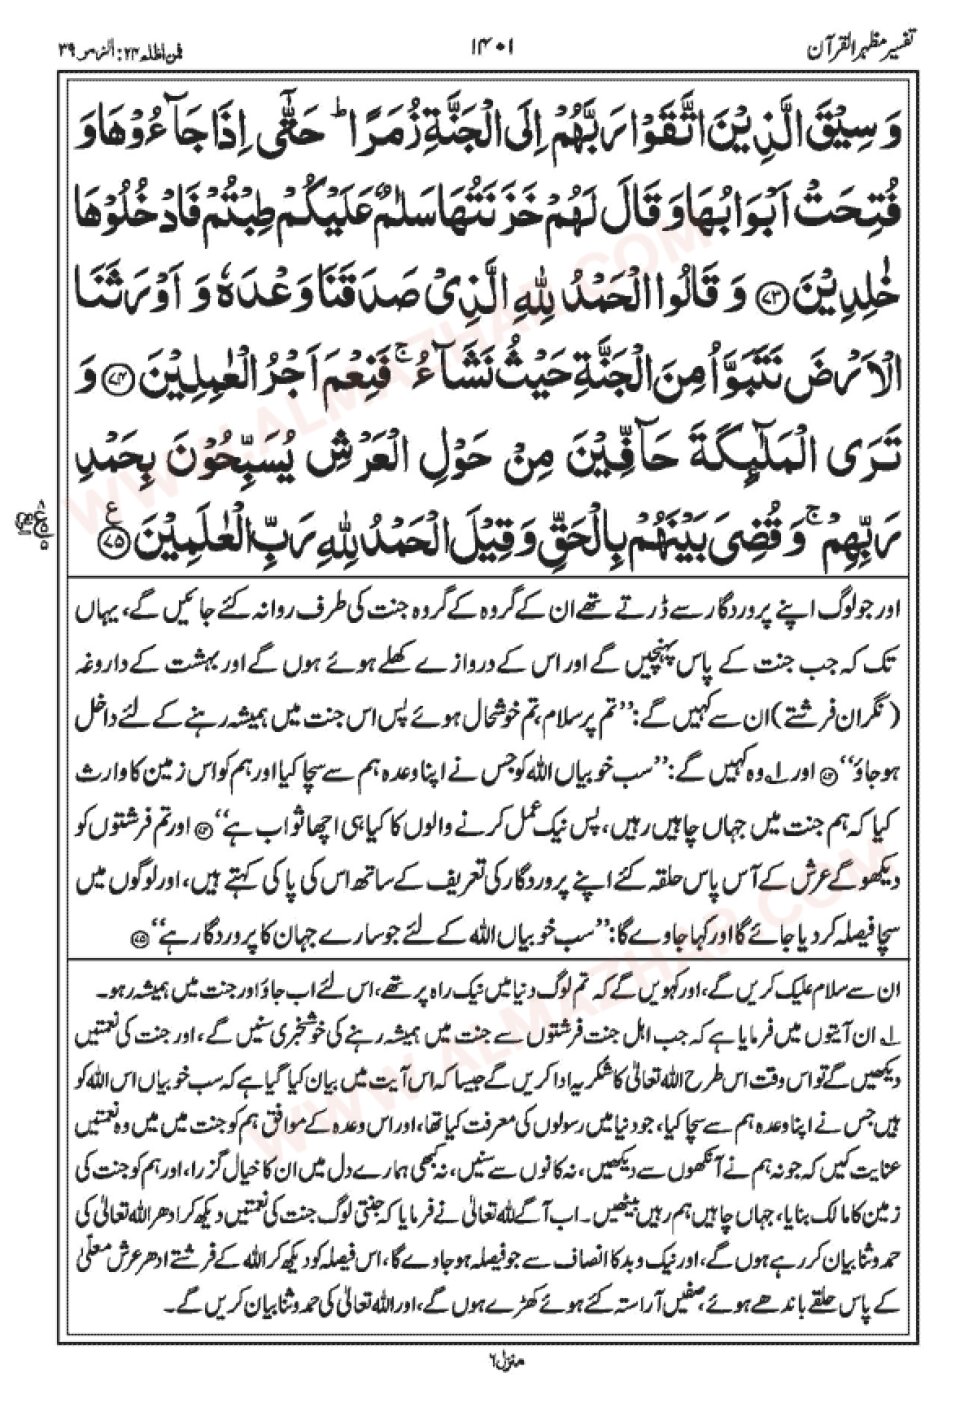 تفسیر مظہر القرآن
۱۴۰۱
فمن اظلم ۲۴: الزمر ۳۹
وَسِيْقَ الَّذِيْنَ اتَّقَوْا رَبَّهُمْ اِلَى الْجَنَّةِ زُمَرًا ؕ حَتّٰۤى اِذَا جَآءُوْهَا وَ
فُتِحَتْ اَبْوَابُهَا وَ قَالَ لَهُمْ خَزَنَتُهَا سَلٰمٌ عَلَيْكُمْ طِبْتُمْ فَادْخُلُوْهَا
خٰلِدِيْنَ ﴿۷۳﴾ وَ قَالُوا الْحَمْدُ لِلّٰهِ الَّذِيْ صَدَقَنَا وَعْدَهٗ وَ اَوْرَثَنَا
الْاَرْضَ نَتَبَوَّاُ مِنَ الْجَنَّةِ حَيْثُ نَشَآءُ ۚ فَنِعْمَ اَجْرُ الْعٰمِلِيْنَ ﴿۷۴﴾ وَ
تَرَى الْمَلٰٓىِٕكَةَ حَآفِّيْنَ مِنْ حَوْلِ الْعَرْشِ يُسَبِّحُوْنَ بِحَمْدِ
رَبِّهِمْ ۚ وَ قُضِيَ بَيْنَهُمْ بِالْحَقِّ وَ قِيْلَ الْحَمْدُ لِلّٰهِ رَبِّ الْعٰلَمِيْنَ ﴿۷۵﴾ ع
اور جو لوگ اپنے پروردگار سے ڈرتے تھے ان کے گروہ کے گروہ جنت کی طرف روانہ کئے جائیں گے، یہاں
تک کہ جب جنت کے پاس پہنچیں گے اور اس کے دروازے کھلے ہوئے ہوں گے اور بہشت کے داروغہ
(نگران فرشتے) ان سے کہیں گے: ’’تم پر سلام، تم خوشحال ہوئے پس اس جنت میں ہمیشہ رہنے کے لئے داخل
ہو جاؤ‘‘ ﴿۷۳﴾ اور ۱؎ وہ کہیں گے: ’’سب خوبیاں اللہ کو جس نے اپنا وعدہ ہم سے سچا کیا اور ہم کو اس زمین کا وارث
کیا کہ ہم جنت میں جہاں چاہیں رہیں، پس نیک عمل کرنے والوں کا کیا ہی اچھا ثواب ہے‘‘ ﴿۷۴﴾ اور تم فرشتوں کو
دیکھو گے عرش کے آس پاس حلقہ کئے اپنے پروردگار کی تعریف کے ساتھ اس کی پاکی کہتے ہیں، اور لوگوں میں
سچا فیصلہ کر دیا جائے گا اور کہا جاوے گا: ’’سب خوبیاں اللہ کے لئے جو سارے جہان کا پروردگار ہے‘‘ ﴿۷۵﴾
ان سے سلام علیک کریں گے، اور کہویں گے کہ تم لوگ دنیا میں نیک راہ پر تھے، اس لئے اب جاؤ اور جنت میں ہمیشہ رہو۔
۱؎ ان آیتوں میں فرمایا ہے کہ جب اہل جنت فرشتوں سے جنت میں ہمیشہ رہنے کی خوشخبری سنیں گے، اور جنت کی نعمتیں
دیکھیں گے تو اس وقت اس طرح اللہ تعالیٰ کا شکریہ ادا کریں گے جیسا کہ اس آیت میں بیان کیا گیا ہے کہ سب خوبیاں اس اللہ کو
ہیں جس نے اپنا وعدہ ہم سے سچا کیا، جو دنیا میں رسولوں کی معرفت کیا تھا، اور اس وعدہ کے موافق ہم کو جنت میں میں وہ نعمتیں
عنایت کیں کہ جو نہ ہم نے آنکھوں سے دیکھیں، نہ کانوں سے سنیں، نہ کبھی ہمارے دل میں ان کا خیال گزرا، اور ہم کو جنت کی
زمین کا مالک بنایا، جہاں چاہیں ہم رہیں بیٹھیں۔ اب آگے اللہ تعالیٰ نے فرمایا کہ جنتی لوگ جنت کی نعمتیں دیکھ کر ادھر اللہ تعالیٰ کی
حمد و ثنا بیان کر رہے ہوں گے، اور نیک و بد کا انصاف سے جو فیصلہ ہو جاوے گا، اس فیصلہ کو دیکھ کر اللہ کے فرشتے ادھر عرش معلّٰی
کے پاس حلقے باندھے ہوئے، صفیں آراستہ کئے ہوئے کھڑے ہوں گے، اور اللہ تعالیٰ کی حمد و ثنا بیان کریں گے۔
منزل ۶
WWW.ALMAZHAR.COM
WWW.ALMAZHAR.COM